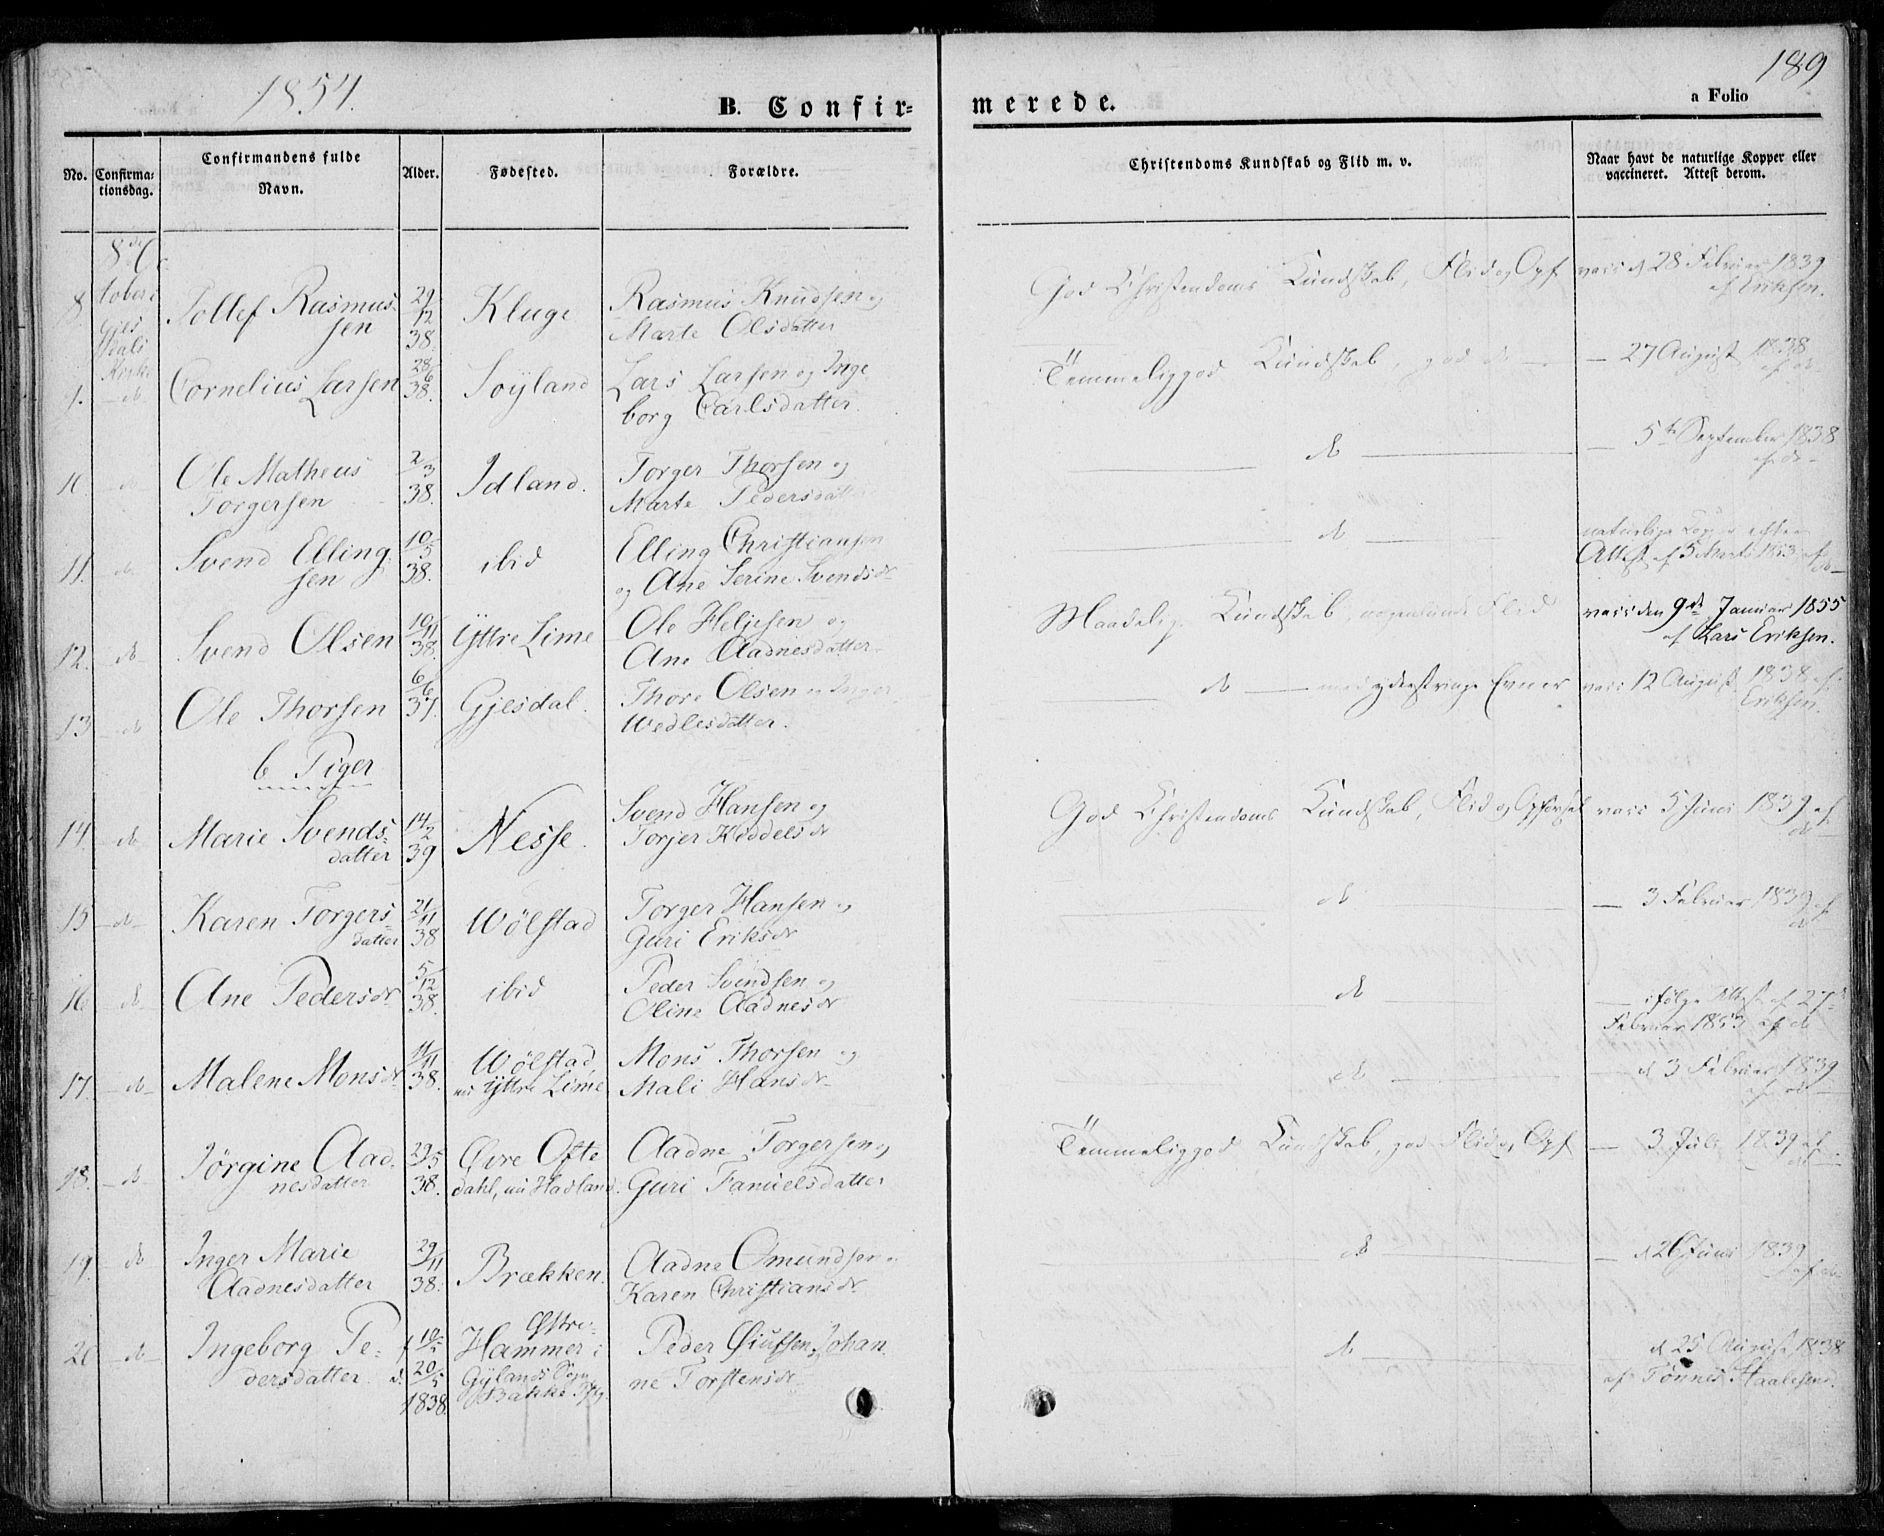 1854.
189
B. Confirmerede.
a Folio
No.
Confirmationsdag.
Confirmandens fulde Navn.
Alder.
Fødested.
Forældre.
Christendoms Kundskab og Flid m. v.
Naar havt de naturlige Kopper eller vaccineret. Attest derom.
8. 8de October i Gjesdals Kirke Tollef Rasmussen 29/12 38. Kluge Rasmus Knudsen og Marte Olsdatter God Christendoms Kundskab, Flid og Opf vacc d 28 Februar 1839 af Eriksen.
9. do Cornelius Larsen 28/6 38. Søyland Lars Larsen og Ingeborg Carlsdatter Temmelig god Kundskab, god do — 27 August 1838 af do
10 do Ole Matheus Torgersen 2/3 38. Idland. Torger Thorsen og Marte Pedersdatter do — 5te September 1838 af do
11. do Svend Ellingsen 10/5 38. ibid Elling Christiansen og Ane Serine Svendsdr do naturlige Kopper efter Attest af 5 Marts 1853 af do
12. do Svend Olsen 10/11 38. Yttre Lime Ole Heljesen og Ane Aadnesdatter Maadelig Kundskab, nogenlunde Flid vacc den 9de Januar 1855 af Lars Eriksen.
13 do Ole Thorsen 6/6 37. Gjesdal. Thore Olsen og Inger Wedlesdatter. do med yderst ringe Evner vacc 12 August 1838 af Eriksen.
b Piger
14. do Marie Svendsdatter 14/2 39 Nesse. Svend Hansen og Torjer Kiddelsdr God Christendoms Kundskab, Flid og Opførsel vacc 5 Juni 1839 af do
15 do Karen Torgersdatter 21/11 38 Wölstad Torger Hansen og Guri Eriksdr do — 3 Februar 1839 af do
16 do Ane Pedersdr 5/12 38. ibid Peder Svendsen og Oline Aadnesdr do — ifølge Attest af 27de Februar 1853 af do
17. do Malene Monsdr 11/11 38. Wölstad, nu Yttre Lime Mons Thorsen og Mali Hansdr do — d 3 Februar 1839 af do
18. do Jörgine Aadnesdatter 29/5 38. Øvre Oftedahl, nu Hadland. Aadne Torgersen og Guri Fanuelsdatter Temmelig god Kundskab, god Flid og Opf — 3 Juli 1839 af do
19. do Inger Marie Aadnesdatter 29/11 38. Brækken. Aadne Omundsen og Karen Christiansdr do — d 26 Juni 1839 af do
20 do Ingeborg Pedersdatter f 10/5 d. 20/5 1838. Østre Hammer i Gylands Sogn Bakke Pg. Peder Øiufsen Johanne Torstensdr do d 25 August 1838 af Tönnes Staalesen.